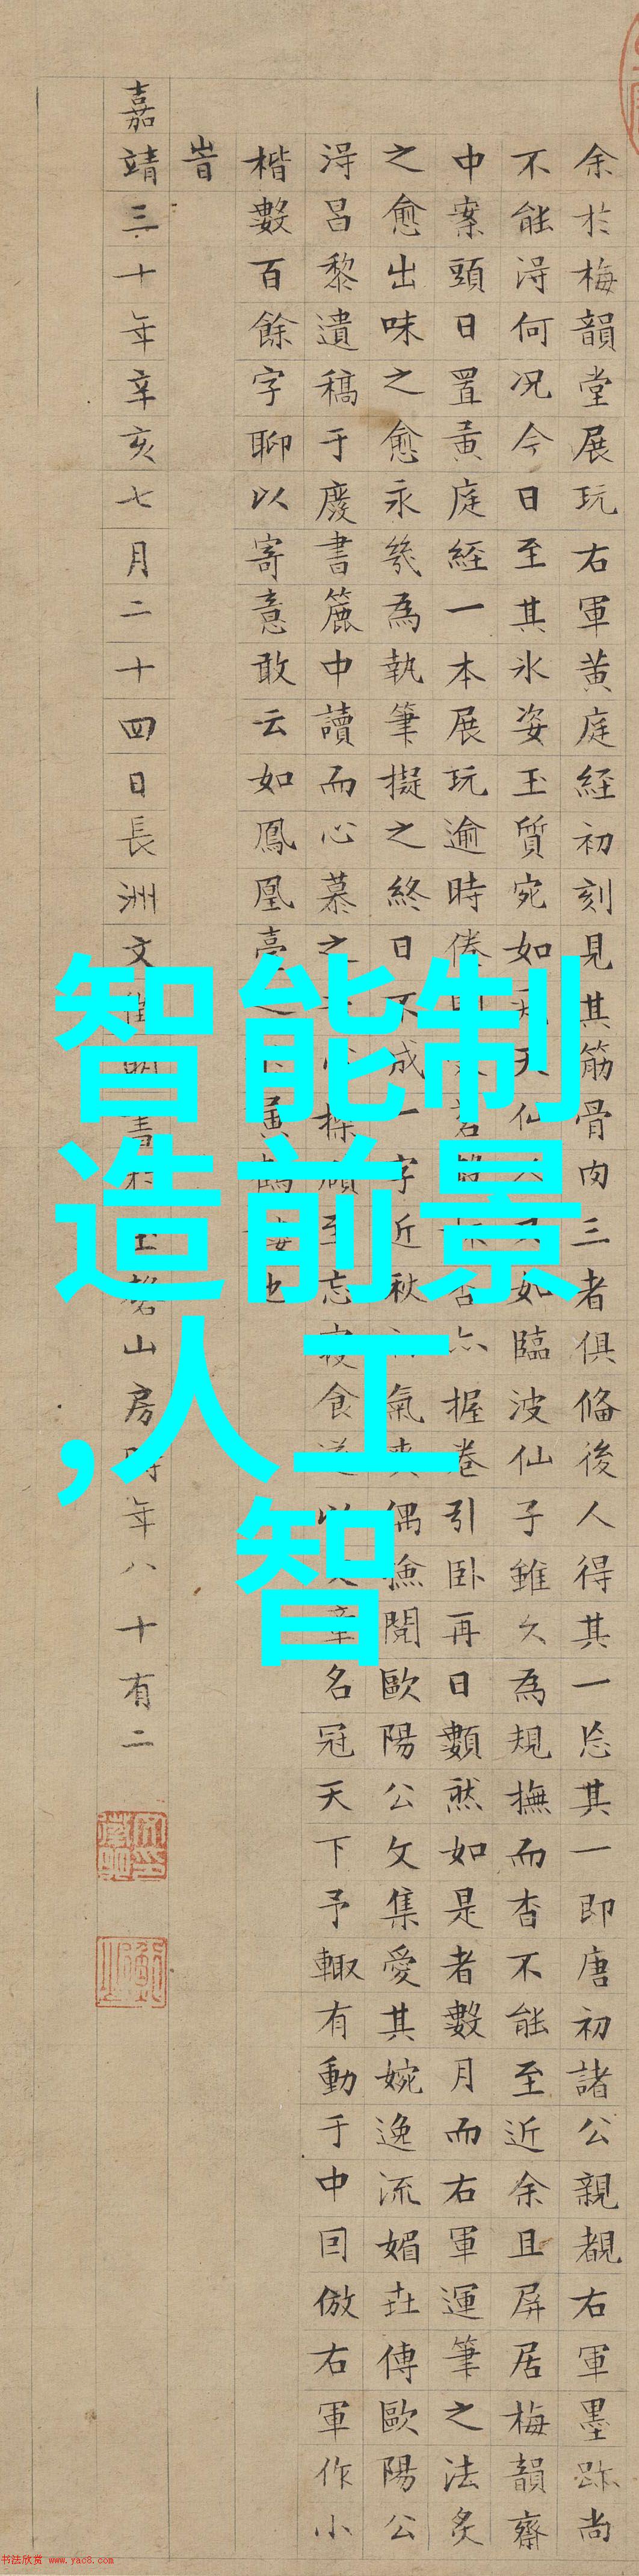 余於梅韻堂展玩右軍黄庭経初刻見其筋骨肉三者俱俻後人得其一忘其一即唐初諸公親覩右軍墨跡尚
不能淂何况今日至其氷姿玉質宛如天仙如臨波仙子雖久為規撫而杳不能至近余且屏居梅韻齋
中案頭日置黄庭經一本展玩逾時倦握卷引臥再日數然如是者數月而右軍運筆之法炙
之愈出味之愈永幾為執筆擬之終日不成一字近秋氣爽偶撿閱歐陽公文集愛其婉逸流媚再傳歐陽公
淂呂黎遺稿于廢書簏中讀而心慕之探願至忘寢食遂以名冠天下予輙有動于中回倣右軍作小
楷數百餘字聊以寄意敢云如鳳凰臺也
旹
嘉靖三十年辛亥七月二十四日長洲文明書山房時年八十有二
智能制
造前景
,人工
智
书法欣赏 www.yac8.com